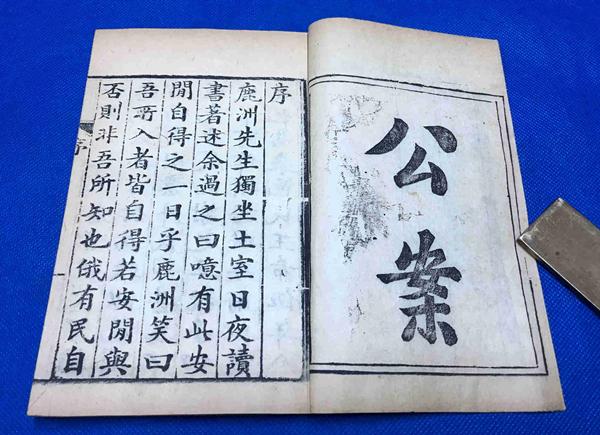 公案
序
鹿洲先生獨坐土室日夜讀
書著述余過之曰噫有此安
閒自得之一日乎鹿洲笑曰
吾所入者皆自得若安閒與
否則非吾所知也俄有民自
序